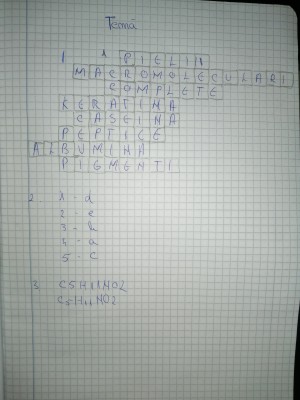 Temă
1 1 PIELII
MACROMOLECULARI
COMPLETE
KERATINA
CASEINA
PEPTICE
ALBUMINA
PIGMENTI
2. 1 - d
2 - e
3 - b
4 - a
5 - c
3. C5H11NO2
C5H11NO2